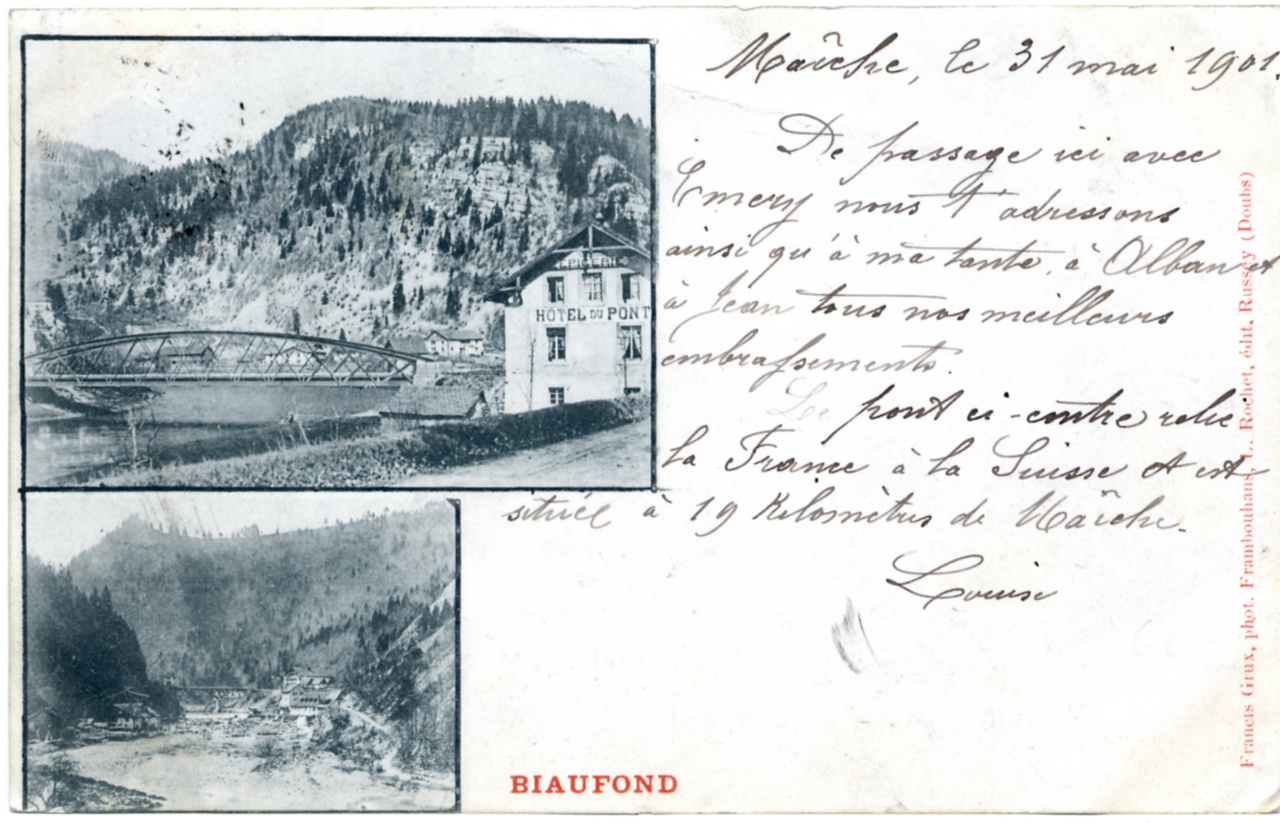 Maîche, le 31 mai 1901.
De passage ici avec
Emery nous t'adressons
ainsi qu'à ma tante, à Alban et
à Jean tous nos meilleurs
embrassements.
Le pont ci-contre relie
la France à la Suisse et est
située à 19 Kilomètres de Maîche.
Louise
EPICERIE
HÔTEL DU PONT
BIAUFOND
Francis Grux, phot. Frambouhans, L. Rochet, édit, Russey (Doubs)